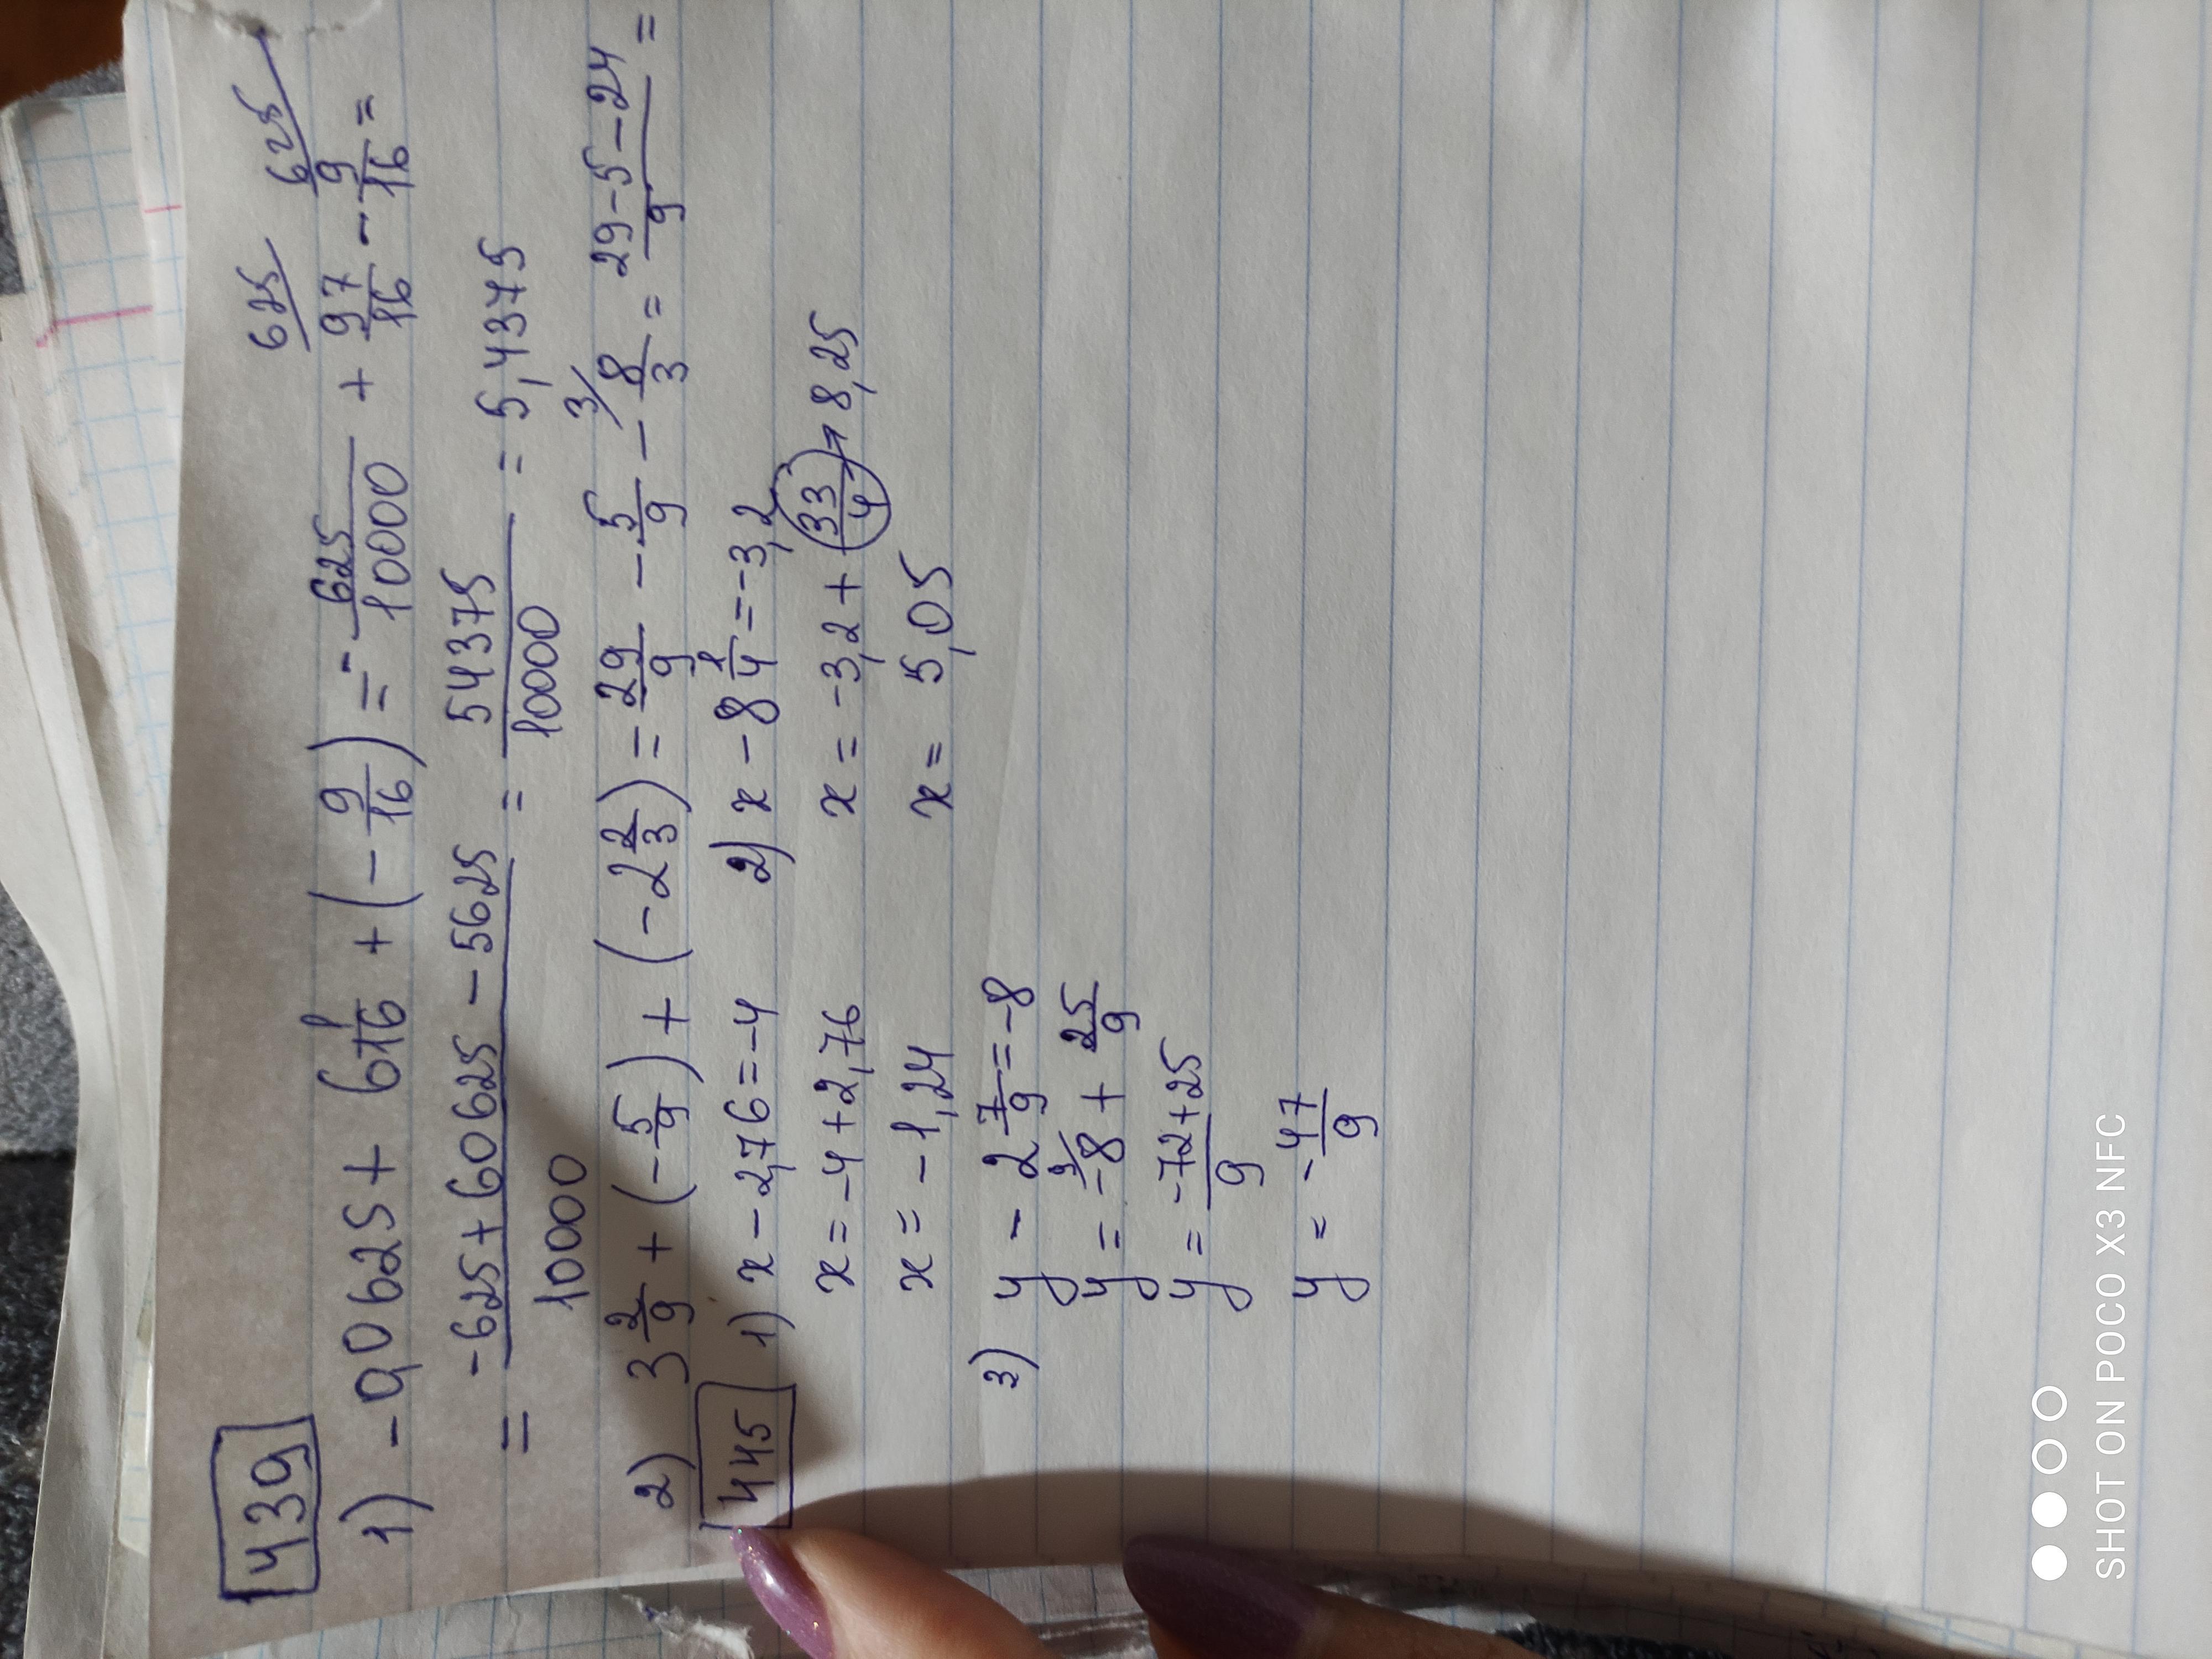 439
625 625
1) -0,0625 + 6 1/16 + (- 9/16) = - 625/10000 + 97/16 - 9/16 =
= -625+60625-5625/10000 = 54375/10000 = 5,4375
2) 3 2/9 + (- 5/9) + (-2 2/3) = 29/9 - 5/9 - 3/ 8/3 = 29-5-24/9 =
445 1) x - 2,76 = -4 2) x - 8 1/4 = -3,2
x = -4 + 2,76 x = -3,2 + 33/4 → 8,25
x = -1,24 x = 5,05
3) y - 2 7/9 = -8
y = 9/ -8 + 25/9
y = -72+25/9
y = - 47/9
SHOT ON POCO X3 NFC